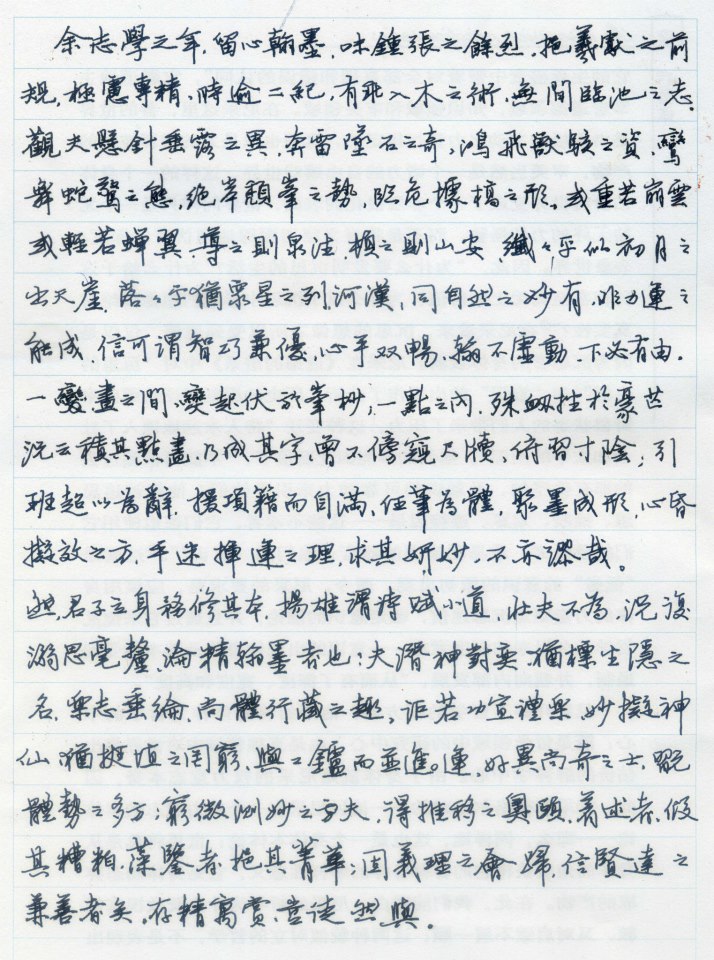 余志學之年,留心翰墨,味鍾張之餘烈,挹羲獻之前
規,極慮專精,時逾二紀,有乖入木之術,無間臨池之志。
觀夫懸針垂露之異,奔雷墜石之奇,鴻飛獸駭之資,鸞
舞蛇驚之態,絕岸頹峯之勢,臨危據槁之形,或重若崩雲
或輕若蟬翼,導之則泉注,頓之則山安,纖々乎似初月之
出天崖,落々乎猶眾星之列河漢,同自然之妙有,非力運之
能成,信可謂智巧兼優,心手双暢,翰不虛動,下必有由。
一畫之間,變起伏於峯杪,一點之內,殊衂挫於豪芒
況云積其點畫,乃成其字,曾不傍窺尺牘,俯習寸陰,引
班超以為辭,援項籍而自滿,任筆為體,聚墨成形,心昏
擬效之方,手迷揮運之理,求其妍妙,不亦謬哉。
然,君子立身,務修其本,揚雄謂詩賦小道,壯夫不為,況復
溺思毫釐,淪精翰墨者也;夫潛神對奕,猶標坐隱之
名,樂志垂綸,尚體行藏之趣,詎若功宣禮樂,妙擬神
仙,猶挻埴之罔窮,與工鑪而並運,好異尚奇之士,翫
體勢之多方;窮微測妙之夫,得推移之奧賾,著述者,假
其糟粕,藻鑒者,挹其菁華;固義理之會歸,信賢達之
兼善者矣。存精寓賞,豈徒然與。